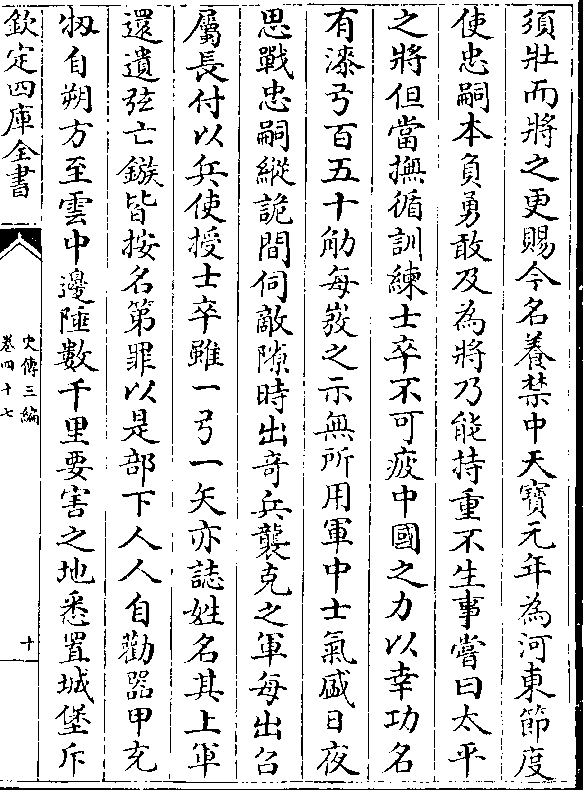 須壯而將之更賜今名養禁中天寶元年為河東節度
使忠嗣本負勇敢及為將乃能持重不生事嘗曰太平
之將但當撫循訓練士卒不可疲中國之力以幸功名
有漆弓百五十觔每弢之示無所用軍中士氣盛日夜
思戰忠嗣縱詭間伺敵隙時出奇兵襲克之軍每出召
屬長付以兵使授士卒雖一弓一矢亦誌姓名其上軍
還遺弦亡鏃皆按名第罪以是部下人人自勸器甲充
牣自朔方至雲中邊陲數千里要害之地悉置城堡斥
欽定四庫全書
史傳三編
卷四十七
十